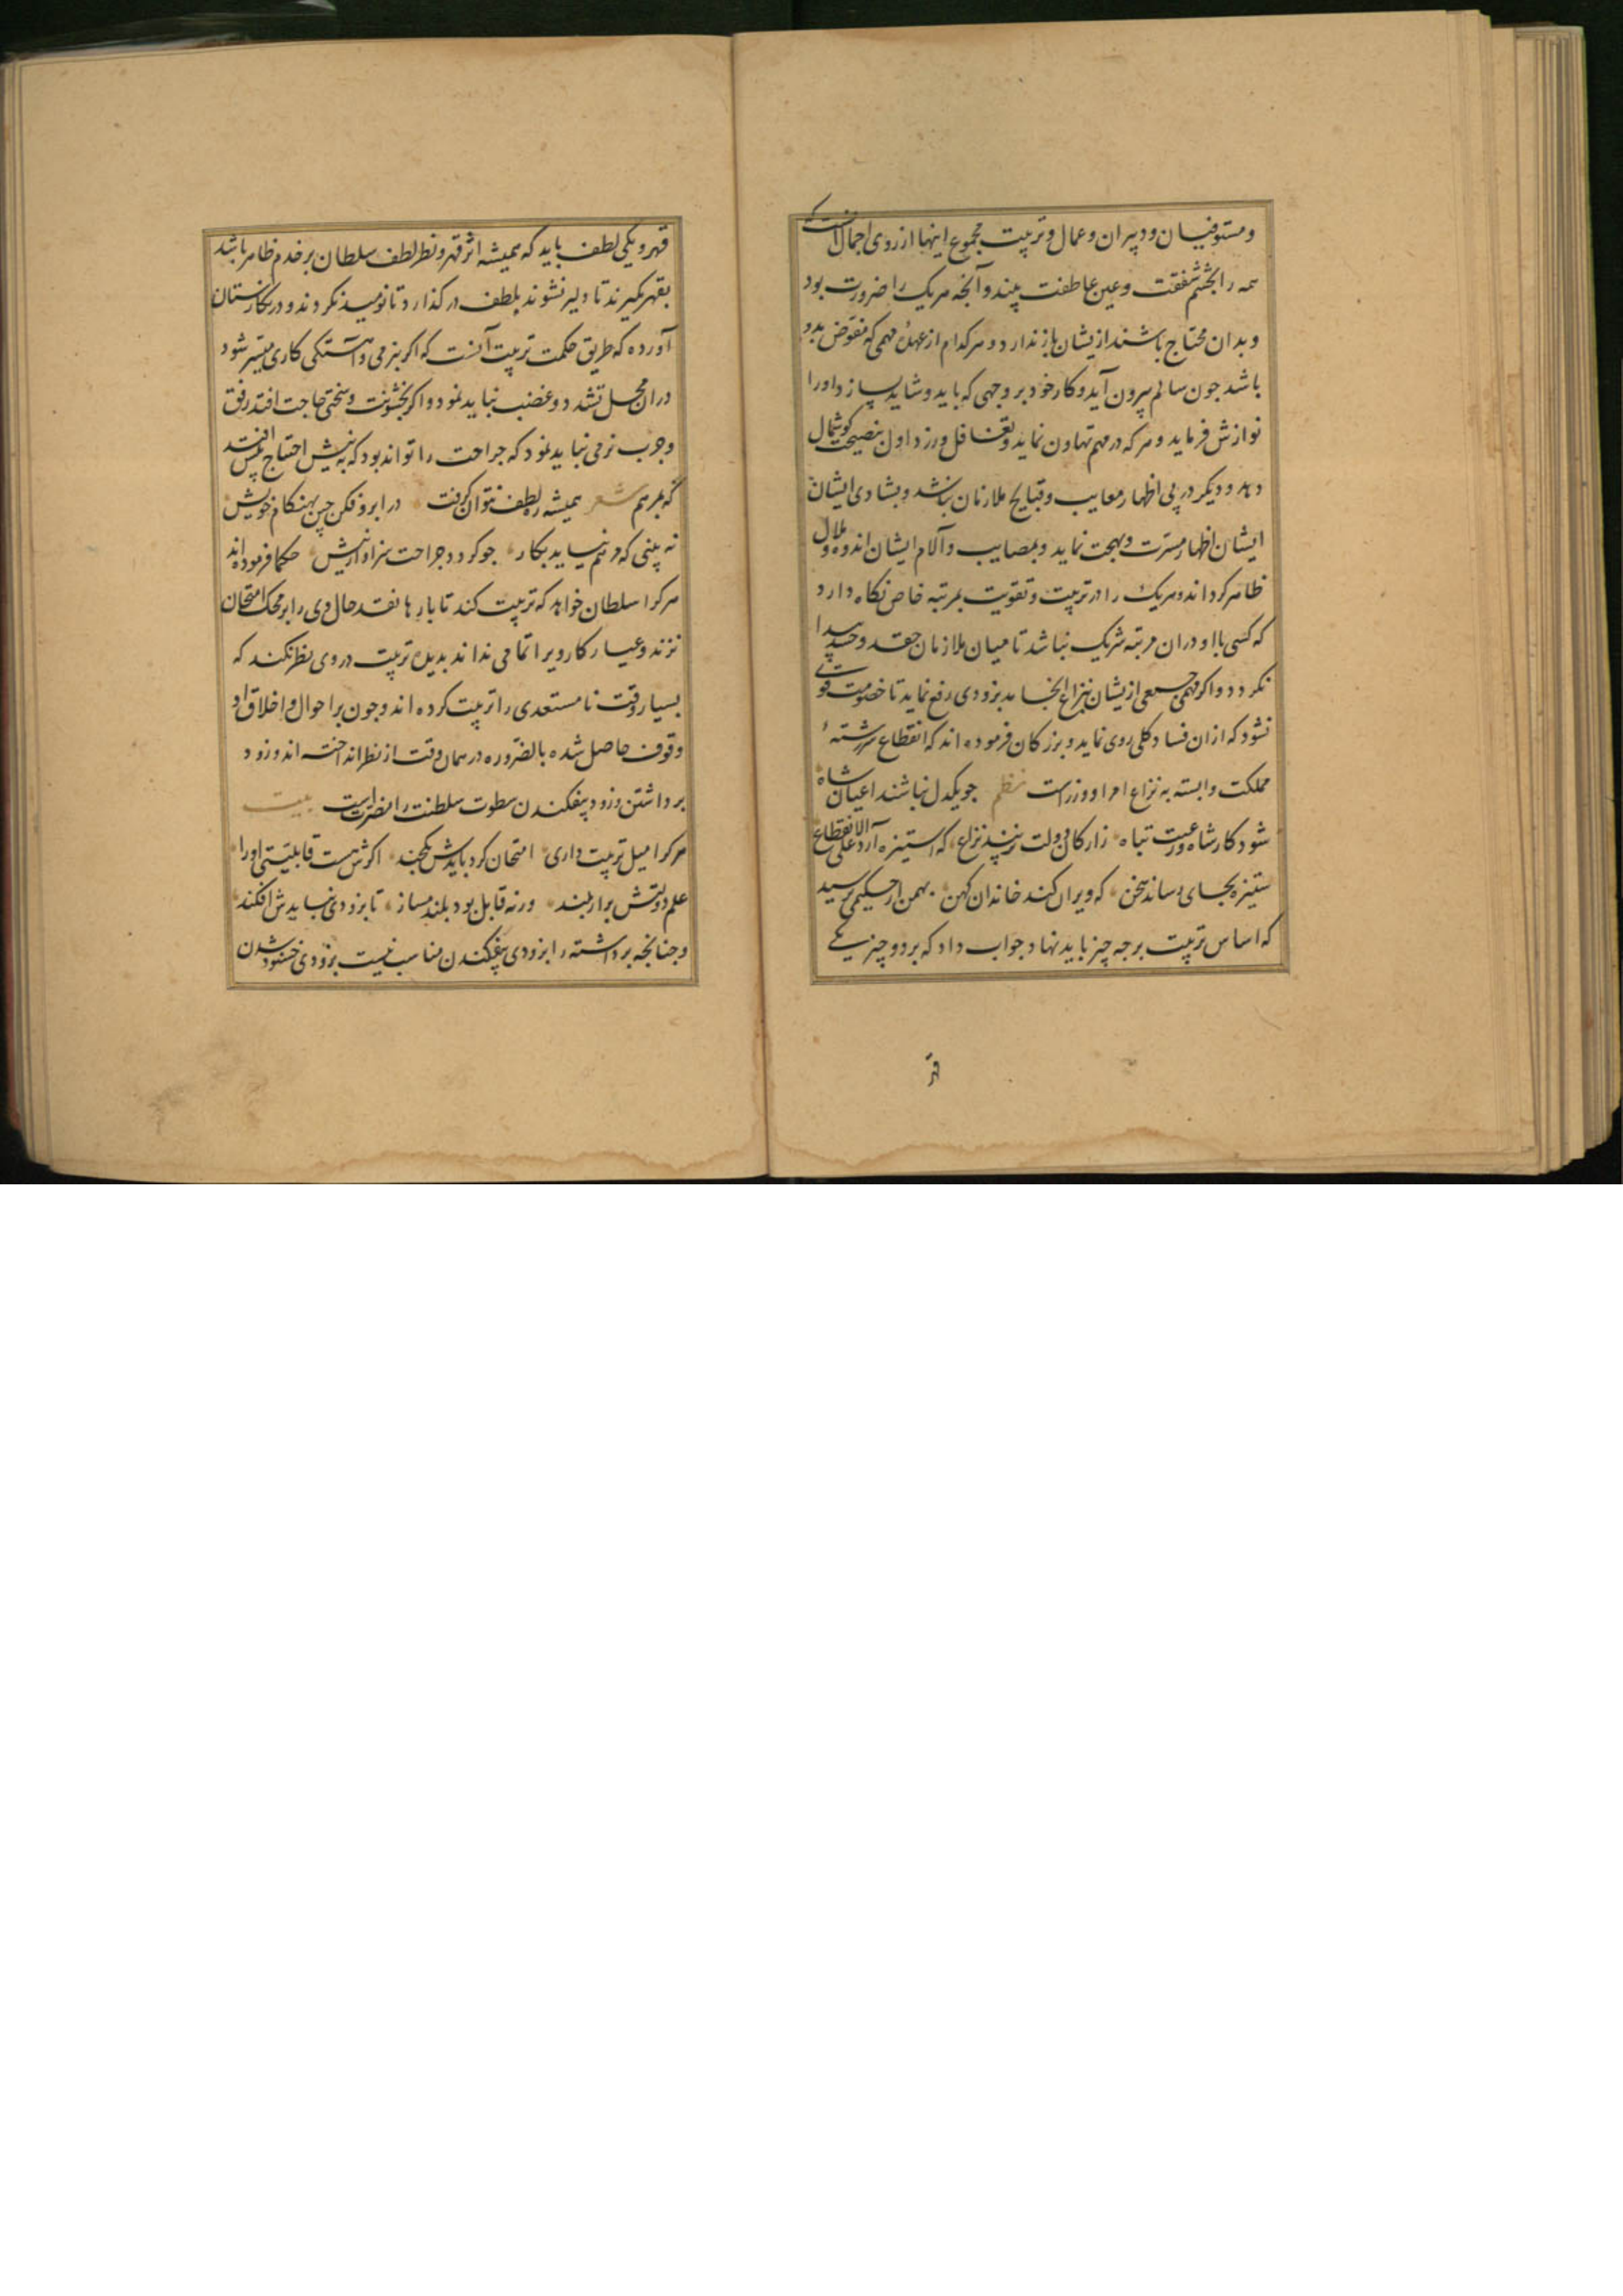 ومستوفیان ودبیران وعمال وتربیت مجموع اینها از روی اجمال آنست که
همه را بچشم شفقت وعین عاطفت بیند وآنچه هریک را ضرورت بود
وبدان محتاج باشند ازیشان باز ندارد و هرکدام از عهدهٔ مهمی که مفوض بدو
باشد جون سالم بیرون آید وکار خود بر وجهی که باید وشاید بسازد اورا
نوازش فرماید وهرکه در مهم تهاون نماید وتغافل ورزد اول بنصیحت کوشمال
دهد ودیکر در پی اظهار معایب وقبایح ملازمان نباشد وبشادی ایشان
ایشان اظهار مسرت وبهجت نماید وبمصایب وآلام ایشان اندوه وملال
ظاهر کرداند وهریک را در تربیت وتقویت بمرتبه خاص نکاه دارد
که کسی با او دران مرتبه شریک نباشد تا میان ملازمان حقد وحسد پیدا
نکردد واکر مهمی جمعی ازیشان بنزاع انجامد بزودی رفع نماید تا خصومت قوی
نشود که ازان فساد کلی روی نماید وبزرکان فرموده اند که انقطاع سررشتهٔ
مملکت وابسته به نزاع امرا ووزراست نظم جو یکدل نباشند اعیان شاه
شود کار شاه ورعیت تباه زارکان دولت نزیبد نزاع که استیزه آرد علی الانقطاع
ستیزه بجای رساند سخن که ویران کند خاندان کهن بهمن از حکیمی پرسید
که اساس تربیت برجه چیز باید نهاد جواب داد که بر دو چیز یکی
قهر
قهر ویکی لطف باید که همیشه اثر قهر ونظر لطف سلطان بر خدم ظاهر باشد
بقهر بگیرند تا دلیر نشوند بلطف در گذارد تا نومید نکردند ودر نکارستان
آورده که طریق حکمت تربیت آنست که اکر بنرمی وآهستکی کاری میسر شود
دران محل تشدد وغضب نباید نمود واکر بخشونت وسختی حاجت افتد رفق
وچرب نرمی نباید نمود که جراحت را تواند بود که به نیش احتاج بیش افتد
که بمرهم شعر همیشه ره لطف نتوان گرفت در ابرو فکن چین بهنکام خویش
نه بینی که مرهم نیاید بکار جو کردد جراحت سزاوار نیش حکما فرموده اند
هرکرا سلطان خواهد که تربیت کند تا بارها نقد حال وی را بر محک امتحان
نزند وعیار کار ویرا تمامی نداند بدیدهٔ تربیت در وی نظر نکند که
بسیار وقت نا مستعدی را تربیت کرده اند وجون بر احوال واخلاق او
وقوف حاصل شده بالضروره در همان وقت از نظر انداخته اند وزود
برداشتن وزود بیفکندن سطوت سلطنت را مضر است بیت
هرکرا میل تربیت داری امتحان کرد بایدش یکچند اکرش هست قابلیتی اورا
علم دولتش برار بلند ورنه قابل بود بلند مساز تا بزودی نبایدش افکند
وجنانجه برداشته را بزودی بیفکندن مناسب نیست بزودی خشنود شدن